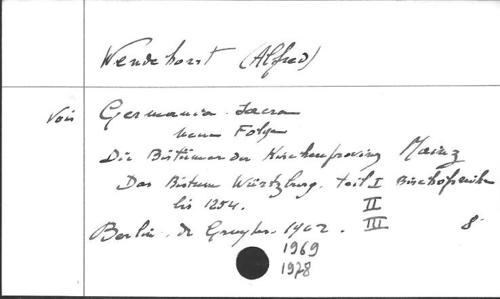 Wendehorst (Alfred)
Voir Germania Sacra
neue Folge
Die Bistümer der Kirchenprovinz Mainz
Das Bistum Würtzburg. Teil I Bischofsreihe
bis 1254. II
Berlin. de Gruyter. 1962. III 8
1969
1978